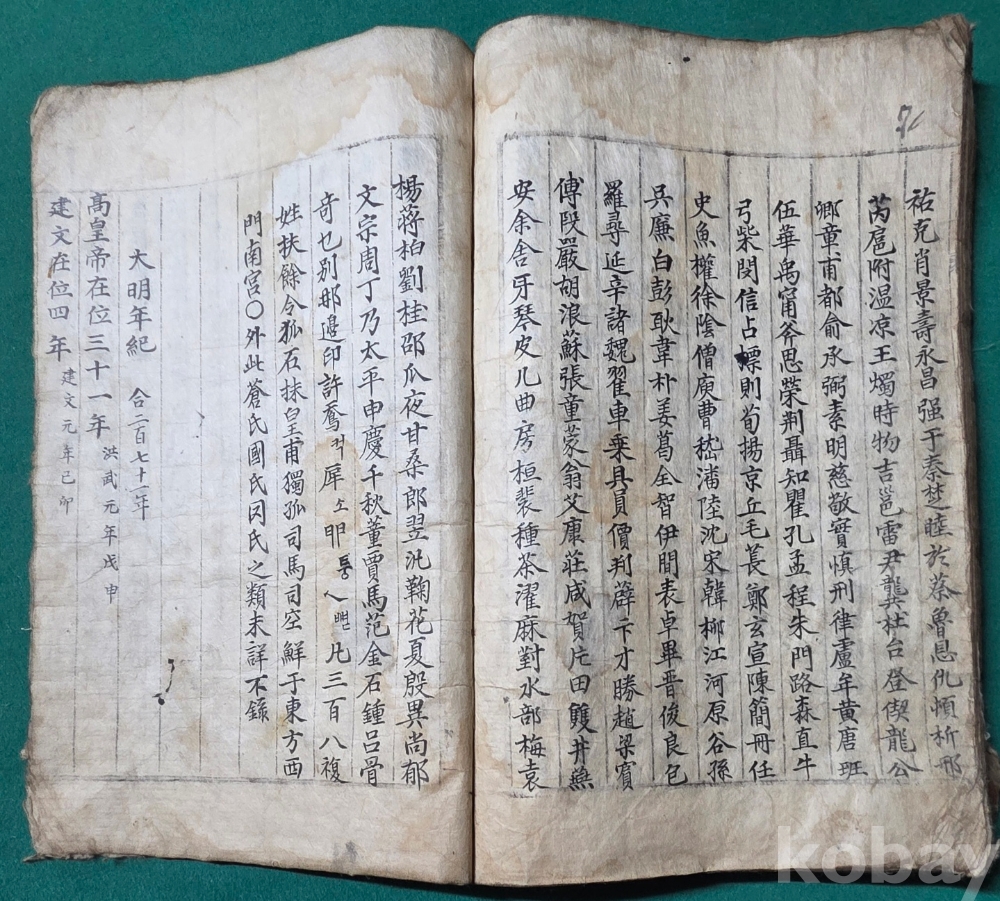 祐克肖景壽永昌强于秦楚睦於蔡魯思仇頓析邢
芮扈附温凉王燭時物吉邕雷尹龔杜台登偰龍公
卿童甫都俞永弼素明慈敬實愼刑律盧年黃唐班
伍華禹甯斧恩榮荆聶知瞿孔孟程朱門路森直牛
弓柴閔信占標則荀揚京丘毛萇鄭玄宣陳簡冊任
史魚權徐陰僧庾曹嵇潘陸沈宋韓柳江河原谷孫
吳廉白彭耿韋朴姜葛全智伊間表卓畢晋俊良包
羅尋延辛諸魏翟車乗具員價判薜卞才勝趙梁賓
傅段嚴胡浪蘇張童蒙翁艾康莊咸賀片田雙井燕
安余舍牙琴皮几曲房桓裴種茶濯麻對水部梅袁
楊蔣柏劉桂邵瓜夜甘桑郎翌氿鞠花夏殷異尚郁
文宗周丁乃太平申慶千秋董賈馬范金石鍾呂骨
奇乜别邦邉印許 걱 소 통 뼌 凡三百八複
姓扶餘令狐石抹皇甫獨孤司馬司空鮮于東方西
門南宮○外此蒼氏國氏冈氏之類未詳不錄
大明年紀 合二百七十二年
高皇帝在位三十一年 洪武元年戊申
建文在位四年 建文元年己卯
kobay